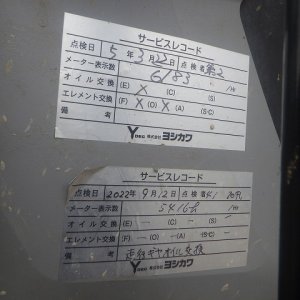 サービスレコード
点検日 5年 3月22日 点検者
メーター表示数 6183 Hr
オイル交換 (E) X (C) (S)
エレメント交換 (F) X (O) X (A) (S)
備考
YDEG 株式会社 ヨシカワ
サービスレコード
点検日 2022年 9月12日 点検者
メーター表示数 Hr
オイル交換 (E) — (C) — (S)
エレメント交換 (F) — (O) — (A) (S)
備考 オイル交換
YDEG 株式会社 ヨシカワ